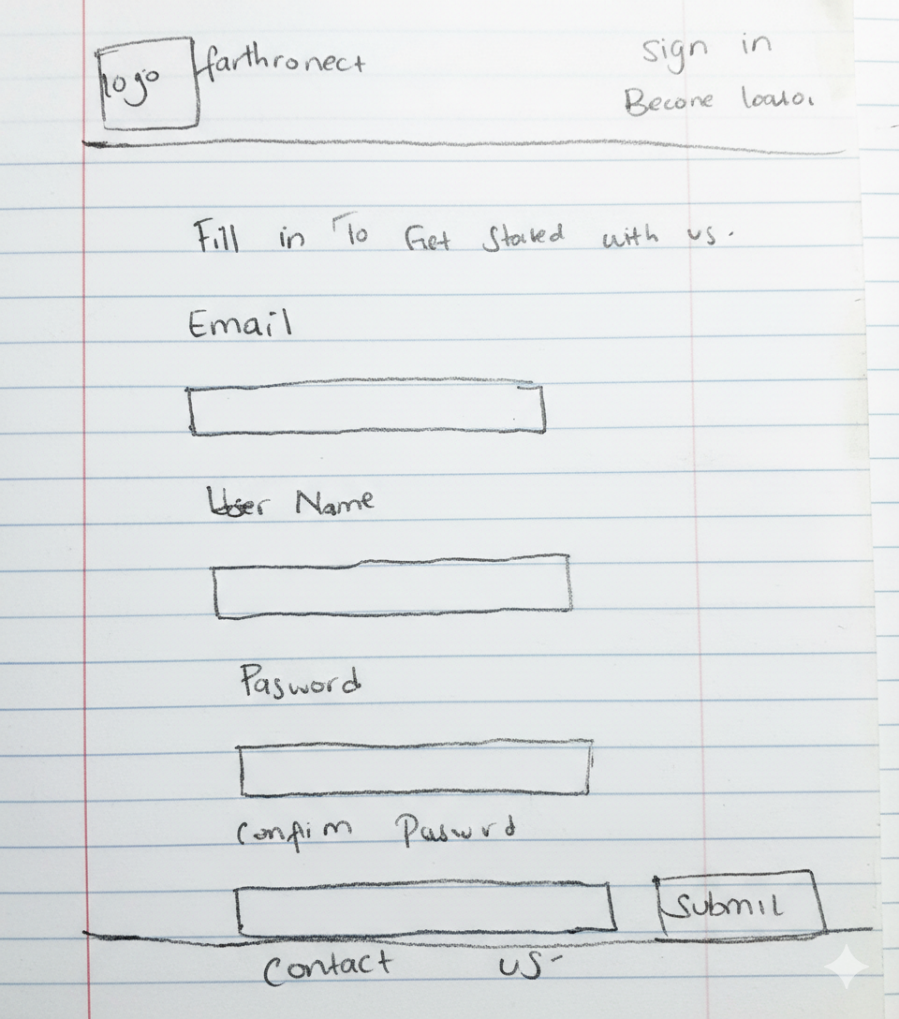 logo farthronect
Sign in
Become
Fill in To Get Started with us.
Email
User Name
Pasword
Confirm Paswrd
Submit
Contact us-